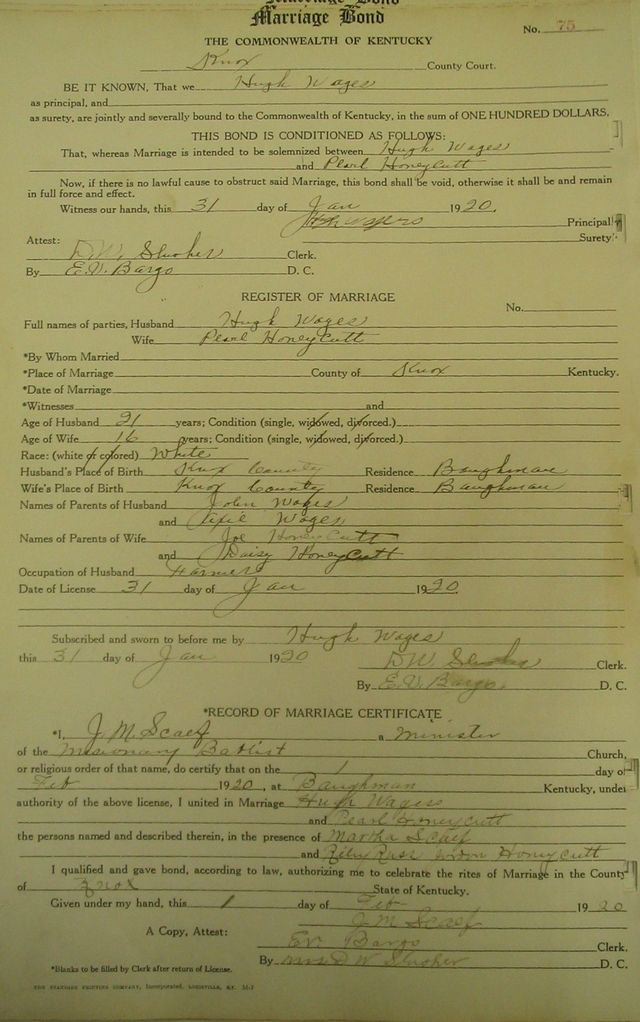 Marriage Bond
Marriage Bond
No. 75
THE COMMONWEALTH OF KENTUCKY
Knox County Court.
BE IT KNOWN, That we Hugh Wages
as principal, and
as surety, are jointly and severally bound to the Commonwealth of Kentucky, in the sum of ONE HUNDRED DOLLARS.
THIS BOND IS CONDITIONED AS FOLLOWS:
That, whereas Marriage is intended to be solemnized between Hugh Wages
and Pearl Honeycutt
Now, if there is no lawful cause to obstruct said Marriage, this bond shall be void, otherwise it shall be and remain
in full force and effect.
Witness our hands, this 31 day of Jan 1920.
Principal
Surety
Attest:
D.W. Slusher Clerk.
By E.V. Bargo D. C.
REGISTER OF MARRIAGE
No.
Full names of parties, Husband Hugh Wages
Wife Pearl Honeycutt
*By Whom Married
*Place of Marriage County of Knox Kentucky.
*Date of Marriage
*Witnesses and
Age of Husband 21 years; Condition (single, widowed, divorced.)
Age of Wife 16 years; Condition (single, widowed, divorced.)
Race: (white or colored) White
Husband's Place of Birth Knox County Residence Baughman
Wife's Place of Birth Knox County Residence Baughman
Names of Parents of Husband John Wages
and Wages
Names of Parents of Wife Joe Honeycutt
and Daisy Honeycutt
Occupation of Husband Farmer
Date of License 31 day of Jan 1920.
Subscribed and sworn to before me by Hugh Wages
this 31 day of Jan 1920 D.W. Slusher Clerk.
By E.V. Bargo. D. C.
*RECORD OF MARRIAGE CERTIFICATE
*I, J.M. Scalf a Minister
of the Missionary Baptist Church,
or religious order of that name, do certify that on the 1 day of
Feb 1920, at Baughman Kentucky, under
authority of the above license, I united in Marriage Hugh Wages
and Pearl Honeycutt
the persons named and described therein, in the presence of Martha Scalf
and Honeycutt
I qualified and gave bond, according to law, authorizing me to celebrate the rites of Marriage in the County
of Knox State of Kentucky.
Given under my hand, this 1 day of Feb 1920
J.M. Scalf
A Copy, Attest:
E.V. Bargo Clerk.
By Mrs D W Slusher D. C.
*Blanks to be filled by Clerk after return of License.
THE STANDARD PRINTING COMPANY, Incorporated, LOUISVILLE, KY.